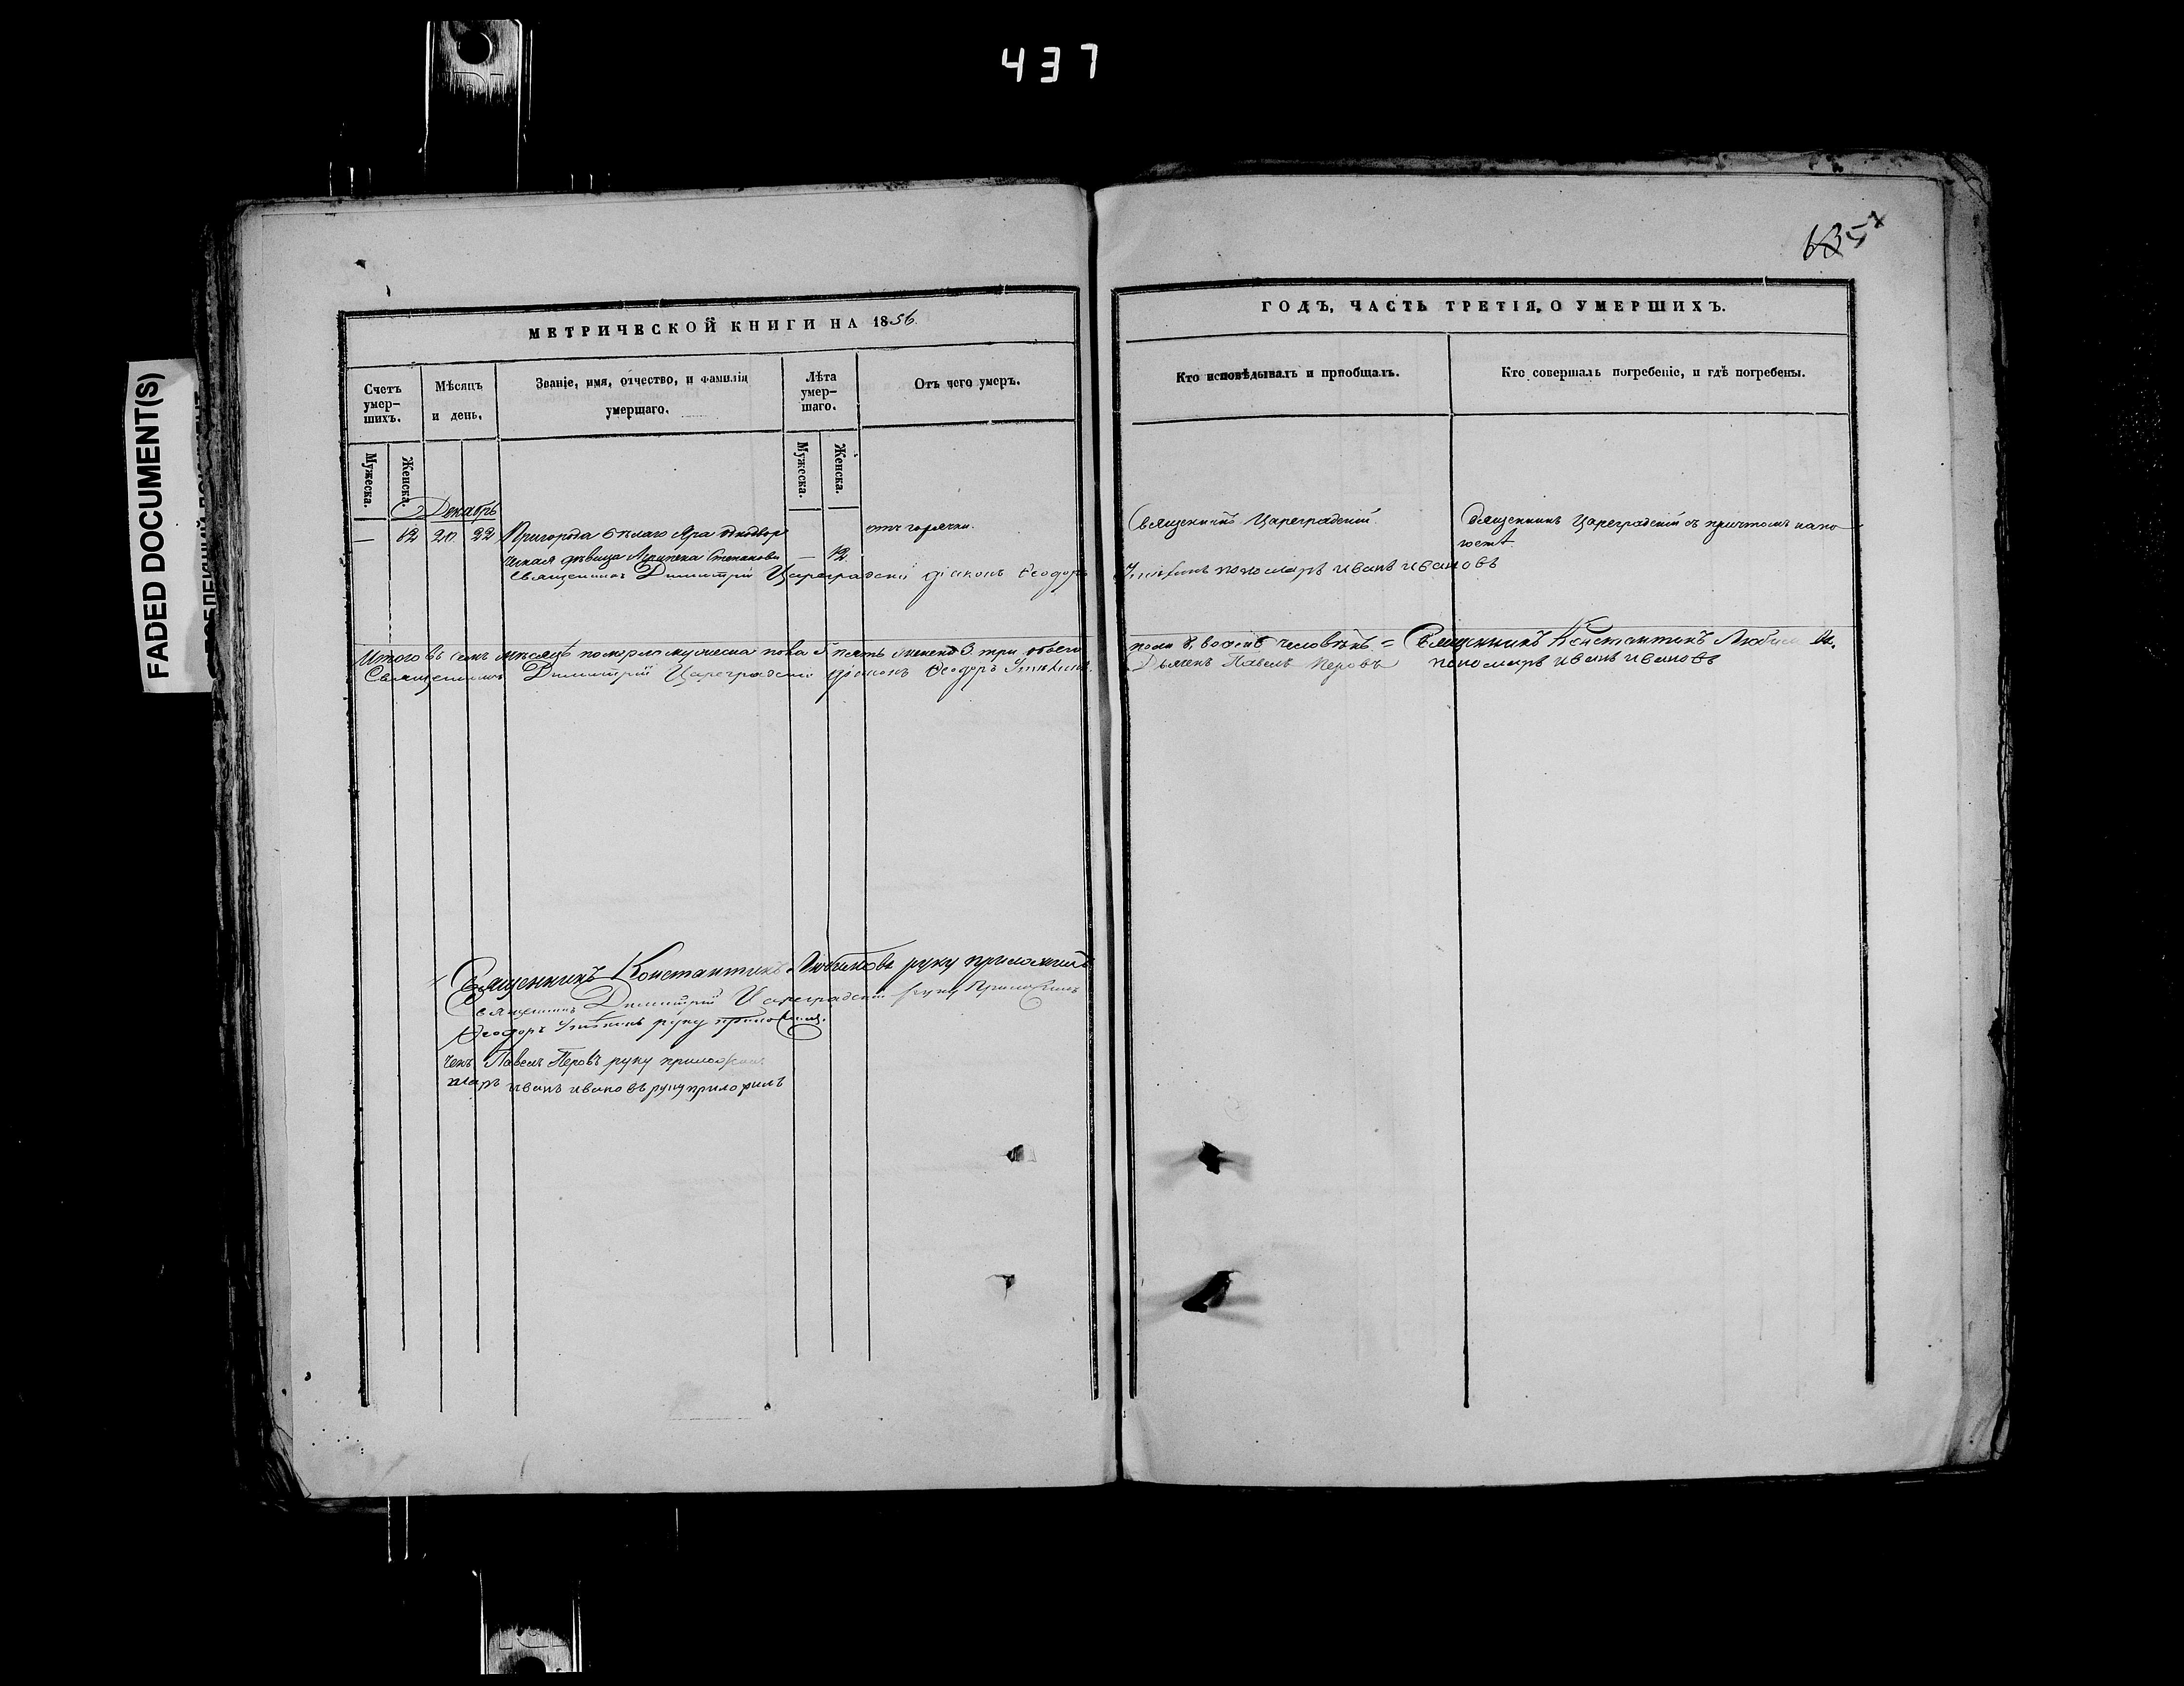 437
FADED DOCUMENT(S)
635
МЕТРИЧЕСКОЙ КНИГИ НА 1856.
ГОДЪ, ЧАСТЬ ТРЕТІЯ, О УМЕРШИХЪ.
Счетъ умер-
шихъ.
Мѣсяцъ
и день.
Званіе, имя, отчество, и фамилія
умершаго.
Лѣта
умер-
шаго.
Отъ чего умеръ.
Кто исповѣдывалъ и пріобщалъ.
Кто совершалъ погребеніе, и гдѣ погребены.
Мужеска.
Женска.
Мужеска.
Женска.
Декабрь
— 62 20 22 Пригорода Бѣлаго Яра однодвор
ческая дѣвица Степанова — 12
отъ горячки.
Священникъ Цареградскій.
Священникъ Цареградскій съ причтомъ на по
гостѣ
Священникъ Димитрій Цареградскій діаконъ Ѳеодоръ пономарь иванъ ивановъ
Итого въ семъ мѣсяцѣ померло мужеска пола 5 пять женска 3 три обоего
пола 8, восемь человѣкъ = Священникъ Константинъ
Священникъ Димитрій Цареградскій діаконъ Ѳеодоръ
Дьячекъ Павелъ Перовъ пономарь иванъ ивановъ
Священникъ Константинъ Любимовъ руку приложилъ
священникъ Димитрій Цареградскій руку Приложилъ
Ѳеодоръ руку приложилъ.
чекъ Павелъ Перовъ руку приложилъ
марь иванъ ивановъ руку приложилъ